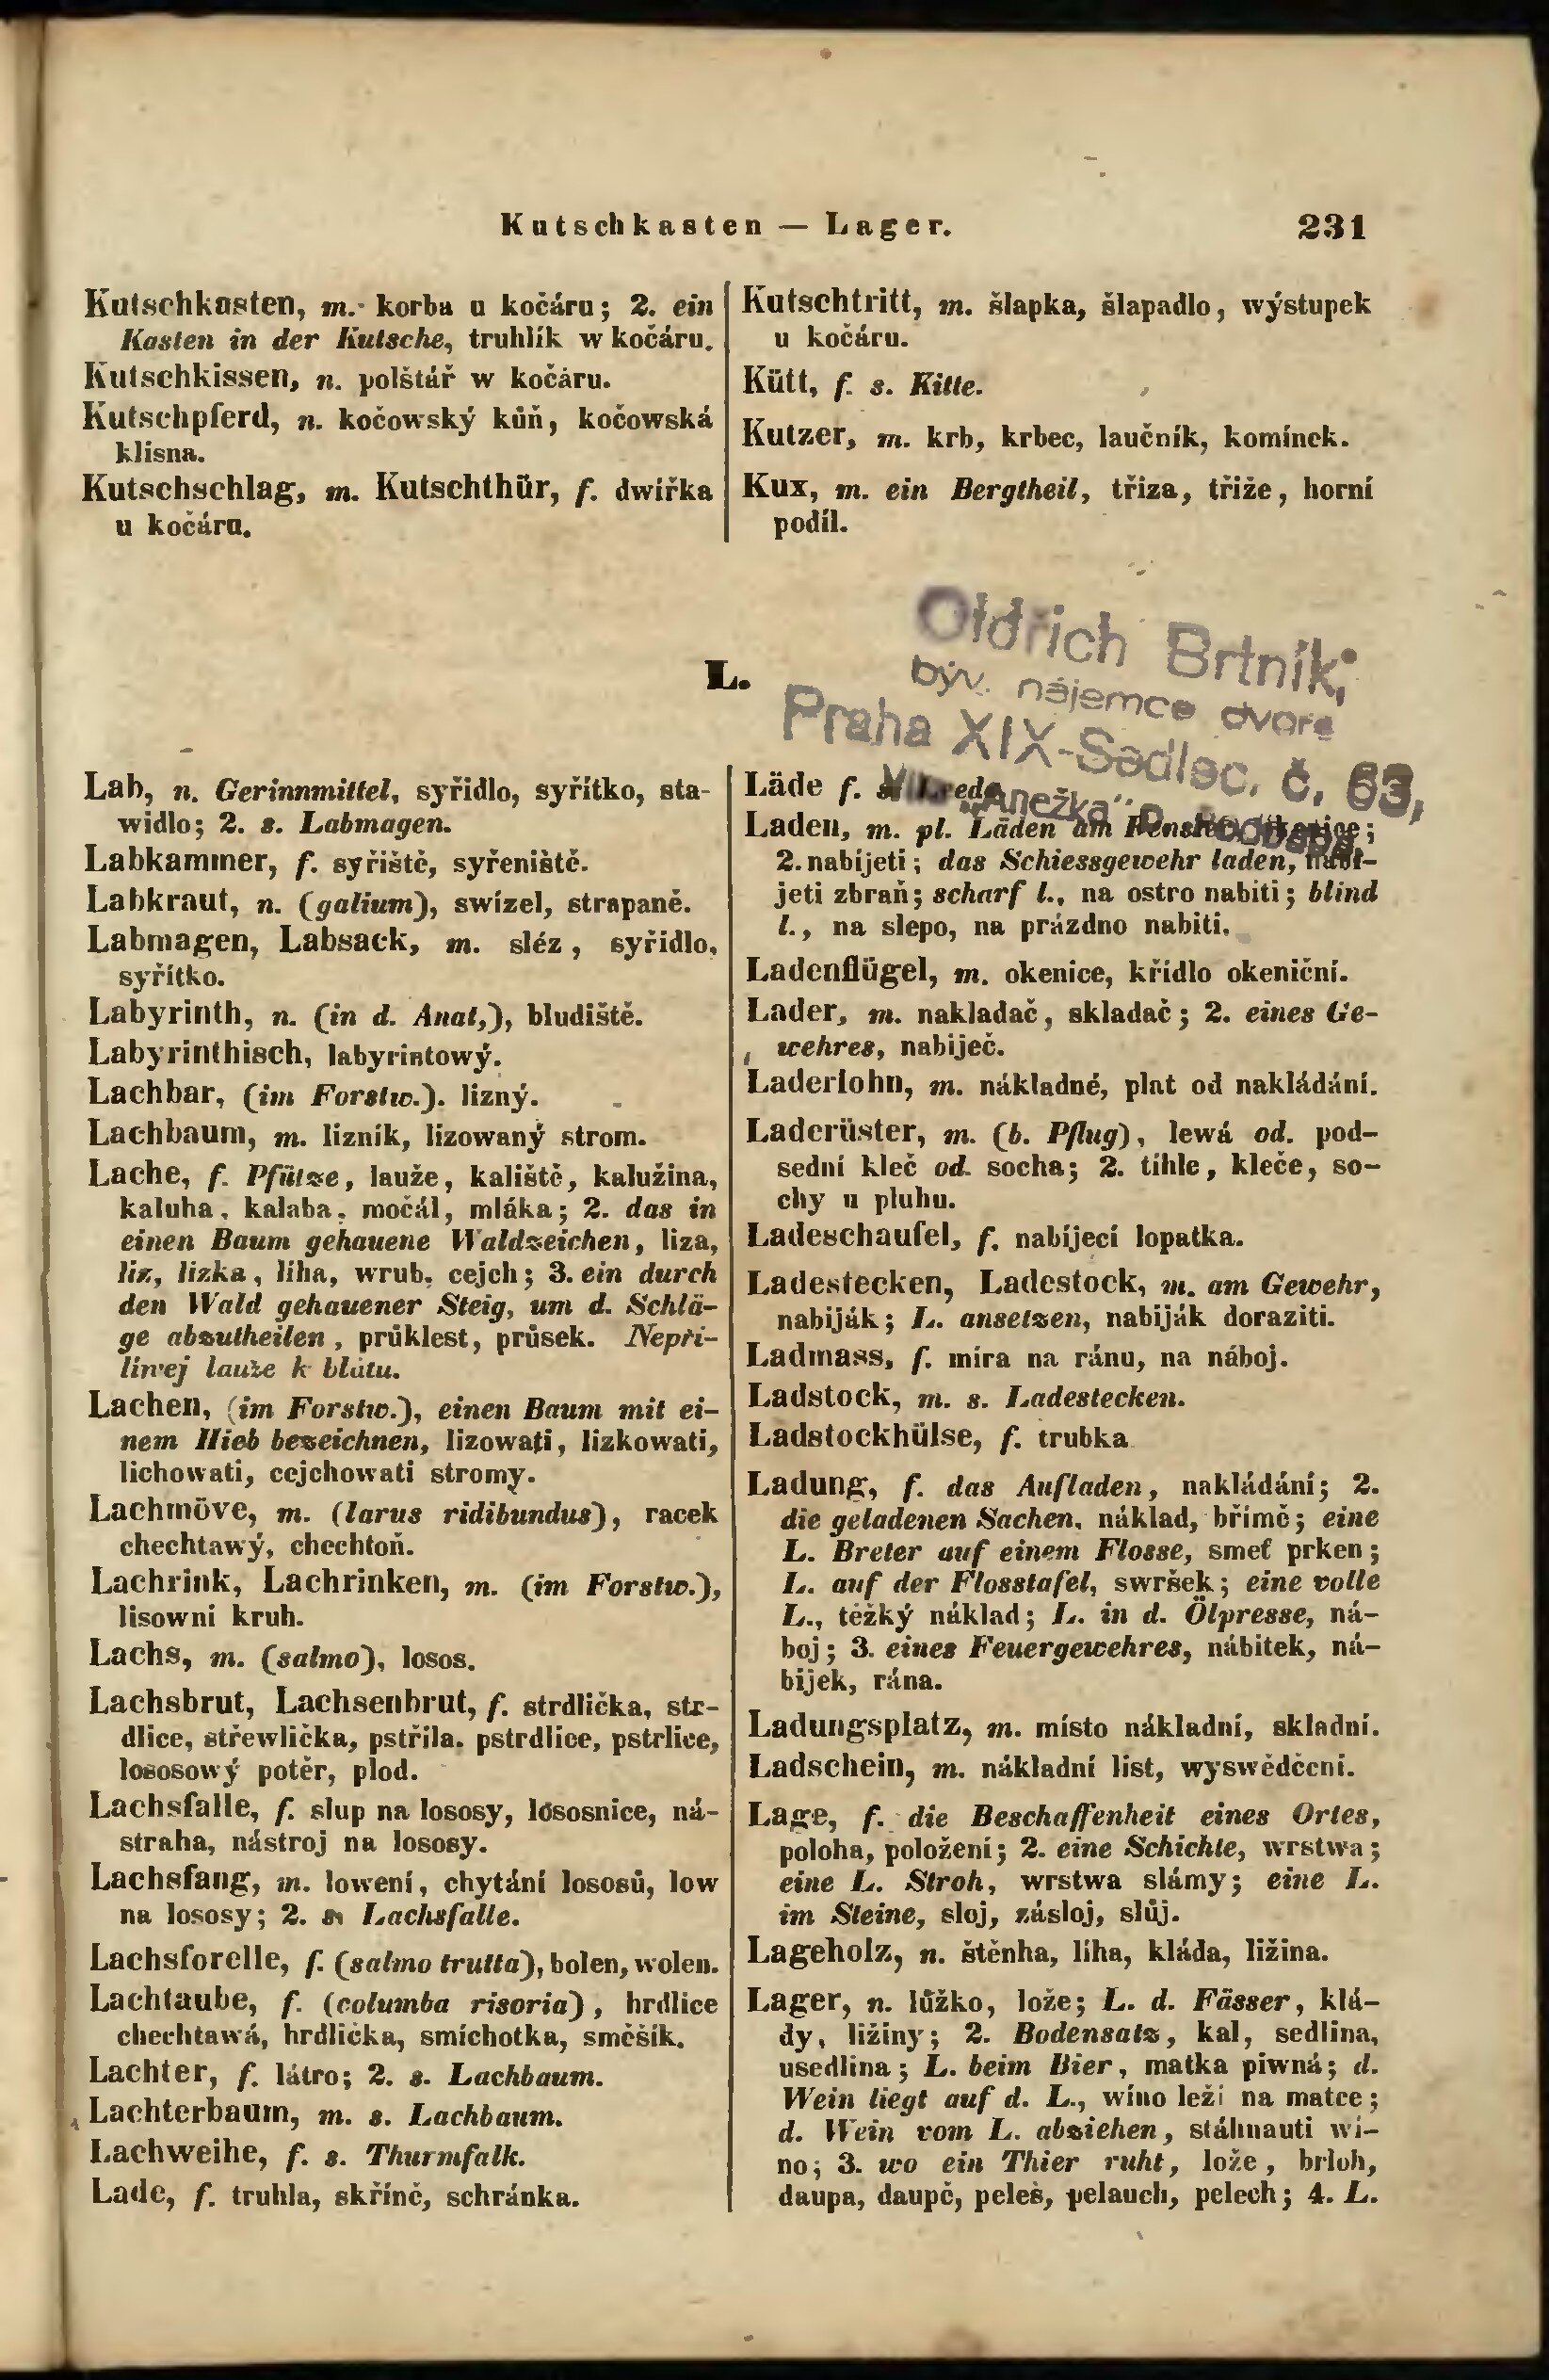 Kutschkasten — Lager. 231
Kutschkasten, m. korba u kočáru; 2. ein
Kasten in der Kutsche, truhlík w kočáru.
Kutschkissen, n. polštář w kočáru.
Kutschpferd, n. kočowský kůň, kočowská
klisna.
Kutschschlag, m. Kutschthür, f. dwířka
u kočáru.
Kutschtritt, m. šlapka, šlapadlo, wýstupek
u kočáru.
Kütt, f. s. Kitte.
Kutzer, m. krb, krbec, laučník, komínek.
Kux, m. ein Bergtheil, třiza, třiže, horní
podíl.
L.
Oldřich Brtník,
býv. nájemce dvora
Praha XIX-Sedlec, č. 63,
"Anežka" p.
Lab, n. Gerinnmittel, syřidlo, syřítko, sta-
widlo; 2. s. Labmagen.
Labkammer, f. syřiště, syřeniště.
Labkraut, n. (galium), swízel, strapaně.
Labmagen, Labsack, m. sléz, syřidlo,
syřítko.
Labyrinth, n. (in d. Anat,), bludiště.
Labyrinthisch, labyrintowý.
Lachbar, (im Forstw.). lizný.
Lachbaum, m. lizník, lizowaný strom.
Lache, f. Pfütze, lauže, kaliště, kalužina,
kaluha, kalaba, močál, mláka; 2. das in
einen Baum gehauene Waldzeichen, liza,
liz, lizka, líha, wrub, cejch; 3. ein durch
den Wald gehauener Steig, um d. Schlä-
ge abzutheilen, průklest, průsek. Nepři-
líwej lauže k blátu.
Lachen, (im Forstw.), einen Baum mit ei-
nem Hieb bezeichnen, lizowati, lizkowati,
lichowati, cejchowati stromy.
Lachmöve, m. (larus ridibundus), racek
chechtawý, chechtoň.
Lachrink, Lachrinken, m. (im Forstw.),
lisowní kruh.
Lachs, m. (salmo), losos.
Lachsbrut, Lachsenbrut, f. strdlička, str-
dlice, střewlička, pstřila. pstrdlice, pstrlice,
lososowý potěr, plod.
Lachsfalle, f. slup na lososy, lososnice, ná-
straha, nástroj na lososy.
Lachsfang, m. lowení, chytání lososů, low
na lososy; 2. s. Lachsfalle.
Lachsforelle, f. (salmo trutta), bolen, wolen.
Lachtaube, f. (columba risoria), hrdlice
chechtawá, hrdlička, smíchotka, směšík.
Lachter, f. látro; 2. s. Lachbaum.
Lachterbaum, m. s. Lachbaum.
Lachweihe, f. s. Thurmfalk.
Lade, f. truhla, skříně, schránka.
Läde f.
Laden, m. pl. Läden am
2. nabíjeti; das Schiessgewehr laden, nabí-
jeti zbraň; scharf l., na ostro nabiti; blind
l., na slepo, na prázdno nabiti.
Ladenflügel, m. okenice, křídlo okeniční.
Lader, m. nakladač, skladač; 2. eines Ge-
wehres, nabiječ.
Laderlohn, m. nákladné, plat od nakládání.
Laderüster, m. (b. Pflug), lewá od. pod-
sední kleč od. socha; 2. tihle, kleče, so-
chy u pluhu.
Ladeschaufel, f. nabíjecí lopatka.
Ladestecken, Ladestock, m. am Gewehr,
nabiják; L. ansetzen, nabiják doraziti.
Ladmass, f. míra na ránu, na náboj.
Ladstock, m. s. Ladestecken.
Ladstockhülse, f. trubka
Ladung, f. das Aufladen, nakládání; 2.
die geladenen Sachen, náklad, břímě; eine
L. Breter auf einem Flosse, smeť prken;
L. auf der Flosstafel, swršek; eine volle
L., těžký náklad; L. in d. Ölpresse, ná-
boj; 3. eines Feuergewehres, nábitek, ná-
bijek, rána.
Ladungsplatz, m. místo nákladní, skladní.
Ladschein, m. nákladní list, wyswědčení.
Lage, f. die Beschaffenheit eines Ortes,
poloha, položení; 2. eine Schichte, wrstwa;
eine L. Stroh, wrstwa slámy; eine L.
im Steine, sloj, zásloj, slůj.
Lageholz, n. štěnha, líha, kláda, ližina.
Lager, n. lůžko, lože; L. d. Fässer, klá-
dy, ližiny; 2. Bodensatz, kal, sedlina,
usedlina; L. beim Bier, matka piwná; d.
Wein liegt auf d. L., wíno leží na matce;
d. Wein vom L. abziehen, stáhnauti wí-
no; 3. wo ein Thier ruht, lože, brloh,
daupa, daupě, peleš, pelauch, pelech; 4. L.